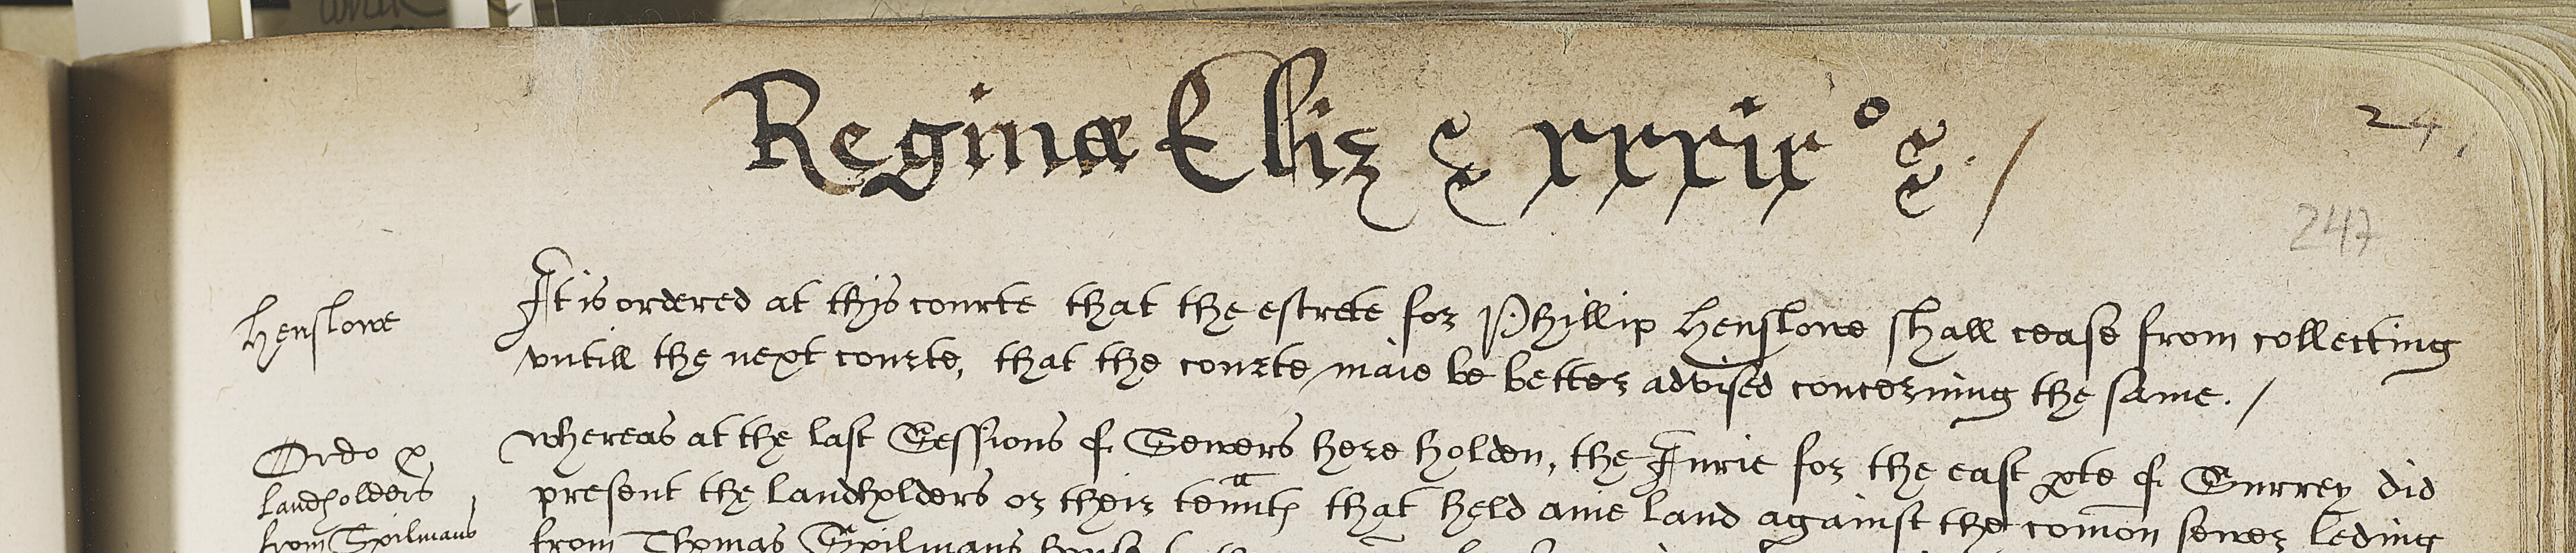 Reginæ Eliz &c xxxix° &c. /
24
247
Henslowe
It is ordered at thys courte that the estrete for Phillip Henslowe shall cease from collecting
vntill the next courte, that the courte maie be better advised concerning the same. /
Ordo p
landholders
from Spilmans
whereas at the last Sessions of Sewers here holden, the Iurie for the east pte of Surrey did
present the landholders or their tennts that held anie land against the comon sewer leding
from Thomas Spilmans house